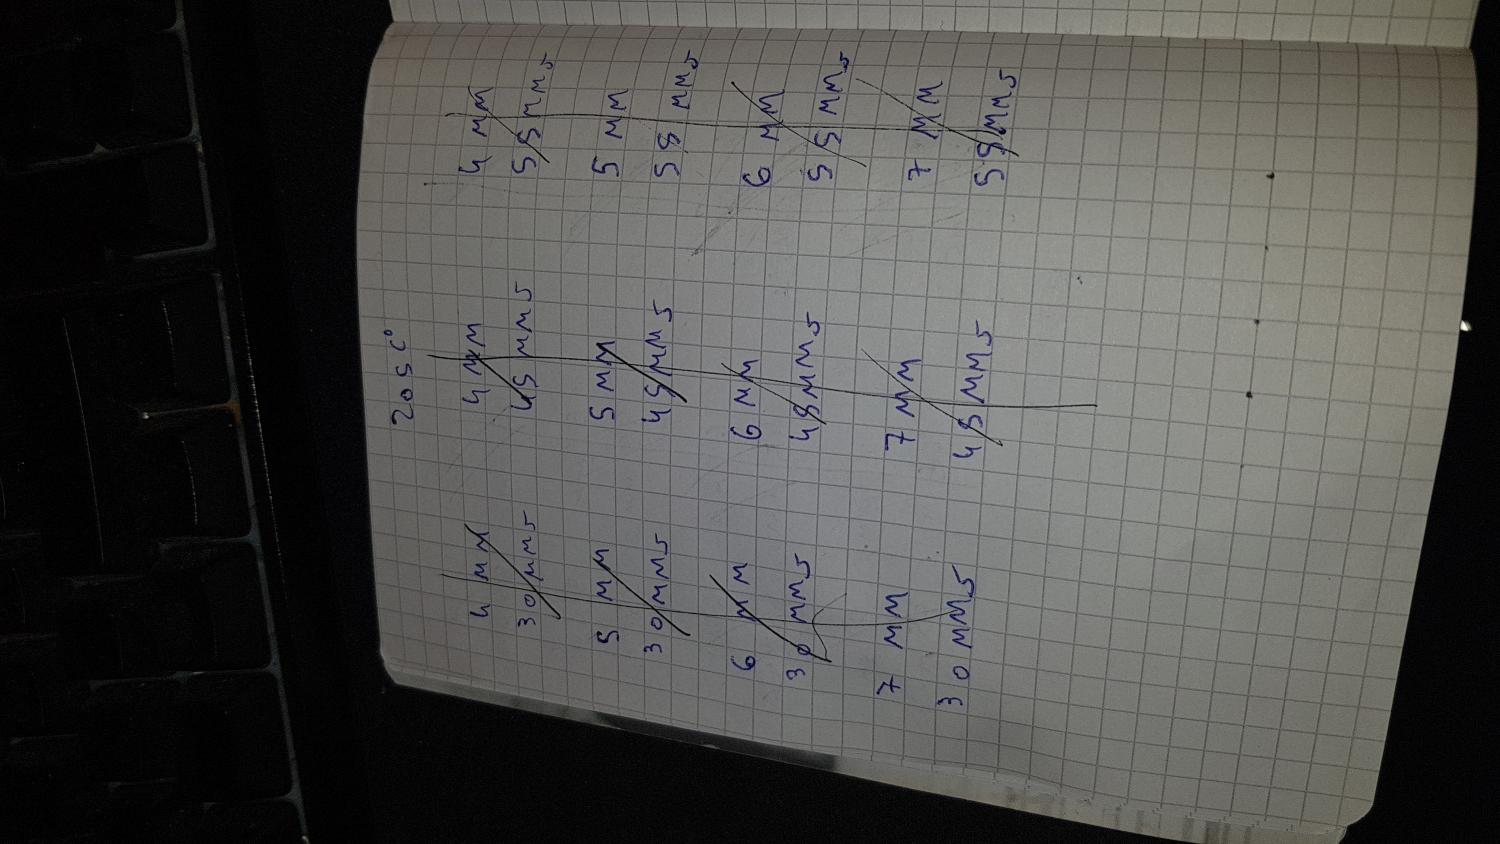 205 C°
4 MM
30 MMS
5 MM
30 MMS
6 MM
30 MMS
7 MM
30 MMS
4 MM
45 MMS
5 MM
45 MMS
6 MM
45 MMS
7 MM
45 MMS
4 MM
55 MMS
5 MM
55 MMS
6 MM
55 MMS
7 MM
55 MMS